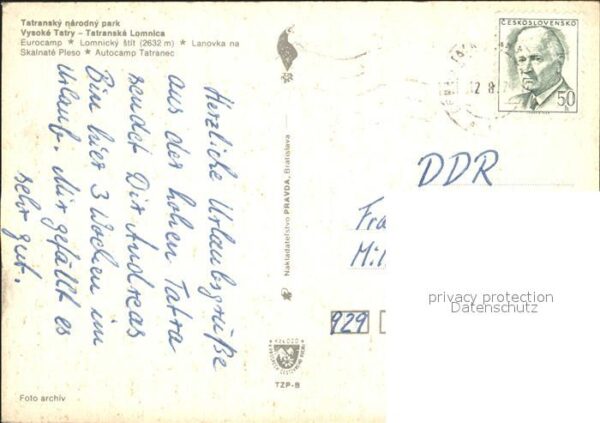 Tatranský národný park
Vysoké Tatry – Tatranská Lomnica
Eurocamp ★ Lomnický štít (2632 m) ★ Lanovka na
Skalnaté Pleso ★ Autocamp Tatranec
Herzliche Urlaubsgrüße
aus der hohen Tatra
sendet Dir Andreas
Bin hier 3 Wochen im
Urlaub. Mir gefällt es
sehr gut.
Foto archív
Nakladateľstvo PRAVDA, Bratislava
TZP-B
ČESKOSLOVENSKO
50
h
DDR
Fra
929
privacy protection
Datenschutz